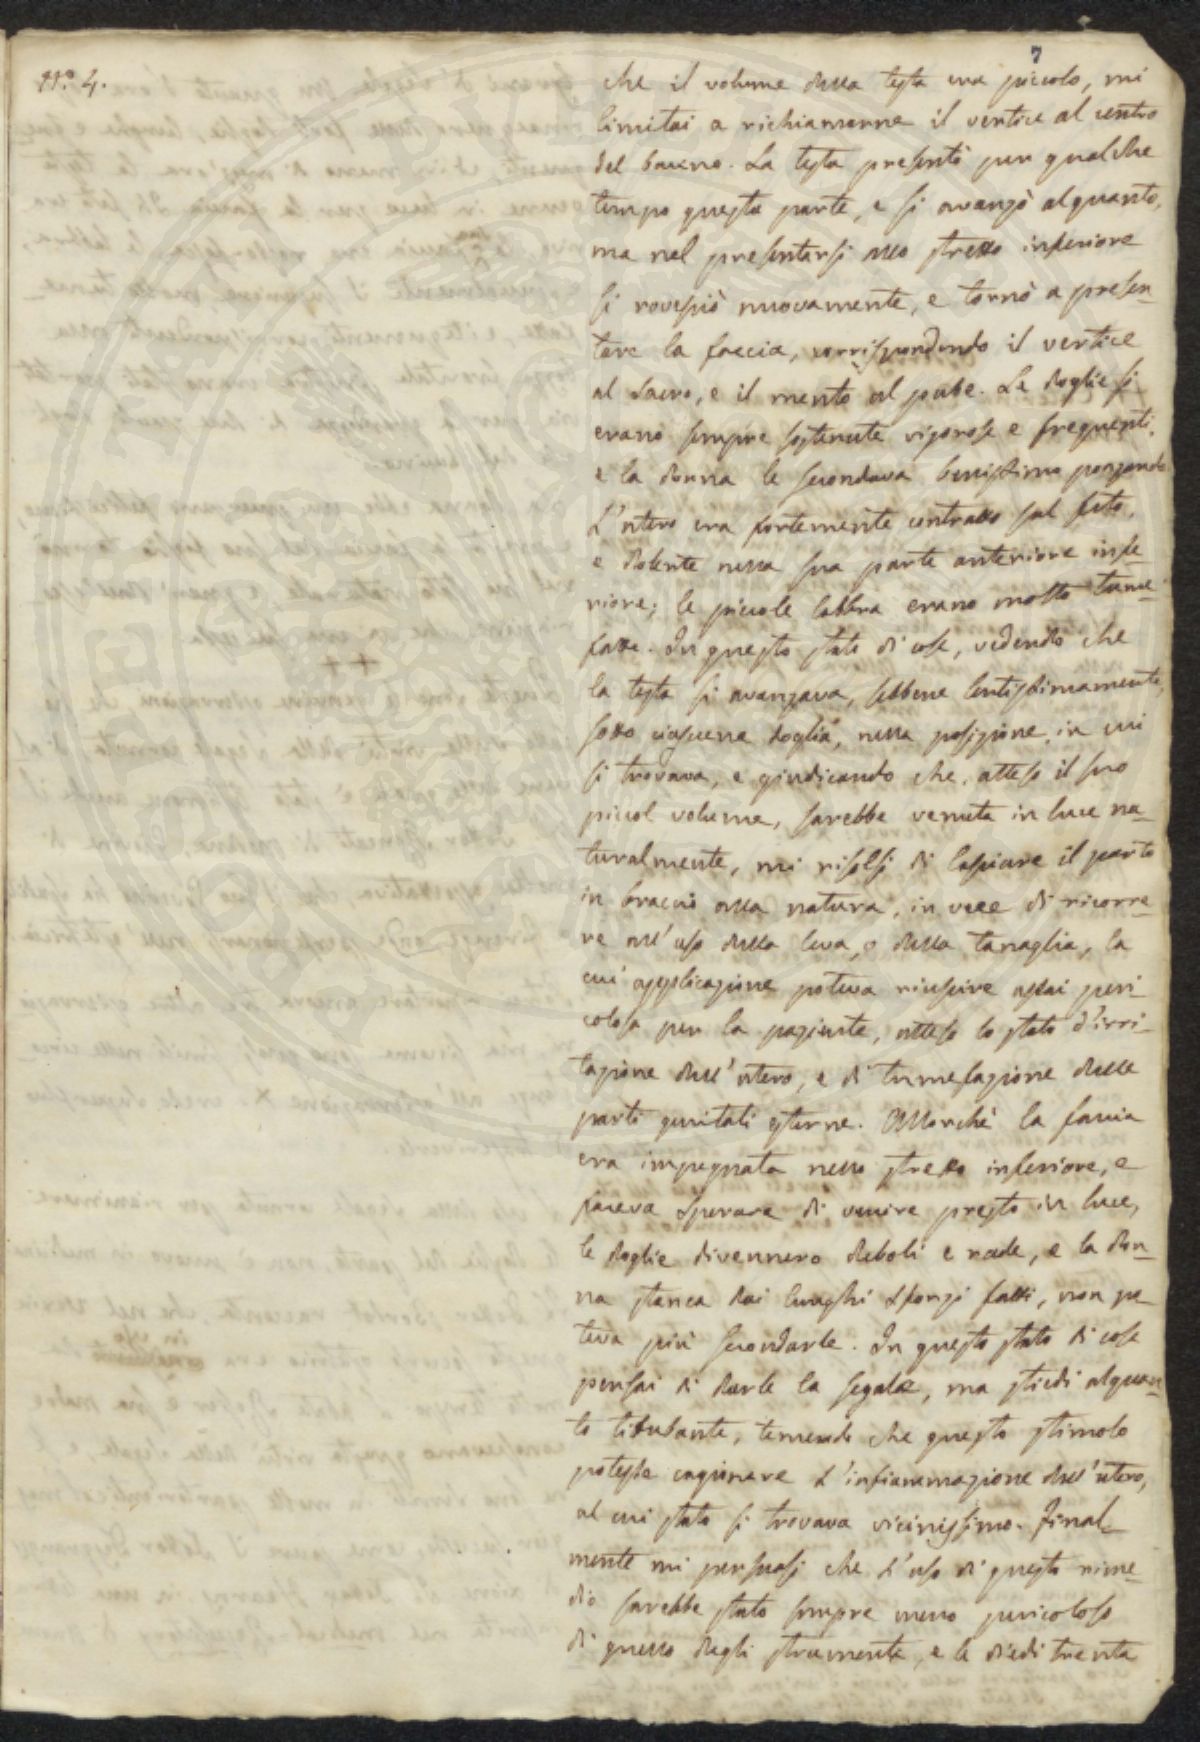 7
N.o 4.
che il volume della testa era piccolo, mi
limitai a richiamarne il vertice al centro
del bacino. La testa presentò per qualche
tempo questa parte, e si avanzò alquanto,
ma nel presentarsi allo stretto inferiore
si rovesciò nuovamente, e tornò a presen-
tare la faccia, corrispondendo il vertice
al sacro, e il mento al pube. Le doglie si
erano sempre sostenute vigorose e frequenti,
e la donna le secondava benissimo ponzando.
L'utero era fortemente contratto sul feto,
e dolente nella sua parte anteriore infe-
riore; le piccole labbra erano molto tume-
fatte. In questo stato di cose, vedendo che
la testa si avanzava, sebbene lentissimamente,
sotto ciascuna doglia, nella posizione in cui
si trovava, e giudicando che, atteso il suo
piccol volume, sarebbe venuta in luce na-
turalmente, mi risolsi di lasciare il parto
in braccio alla natura, in vece di ricorre-
re all'uso della leva, o della tanaglia, la
cui applicazione poteva riuscire assai peri-
colosa per la paziente, atteso lo stato d'irri-
tazione dell'utero, e di tumefazione delle
parti genitali esterne. Allorchè la faccia
era impegnata nello stretto inferiore, e
faceva sperare di venire presto in luce,
le doglie divennero deboli e rade, e la don-
na stanca dai lunghi sforzi fatti, non po-
teva più secondarle. In questo stato di cose
pensai di darle la segale, ma stiedi alquan-
to titubante, temendo che questo stimolo
potesse cagionare l'infiammazione dell'utero,
al cui stato si trovava vicinissimo. Final-
mente mi persuasi che l'uso di questo rime-
dio sarebbe stato sempre meno pericoloso
di quello degli strumenti, e le diedi trenta